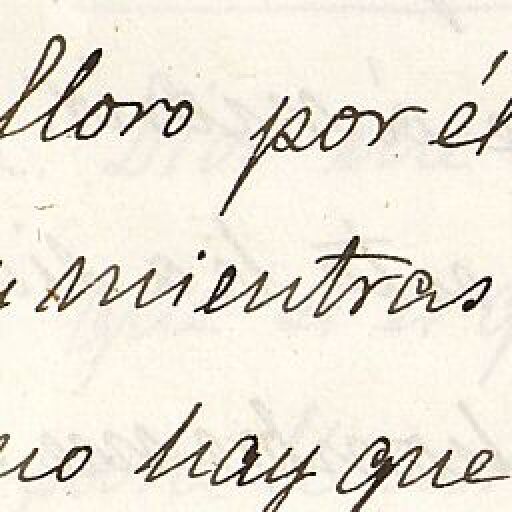 lloro por él
mientras
no hay que